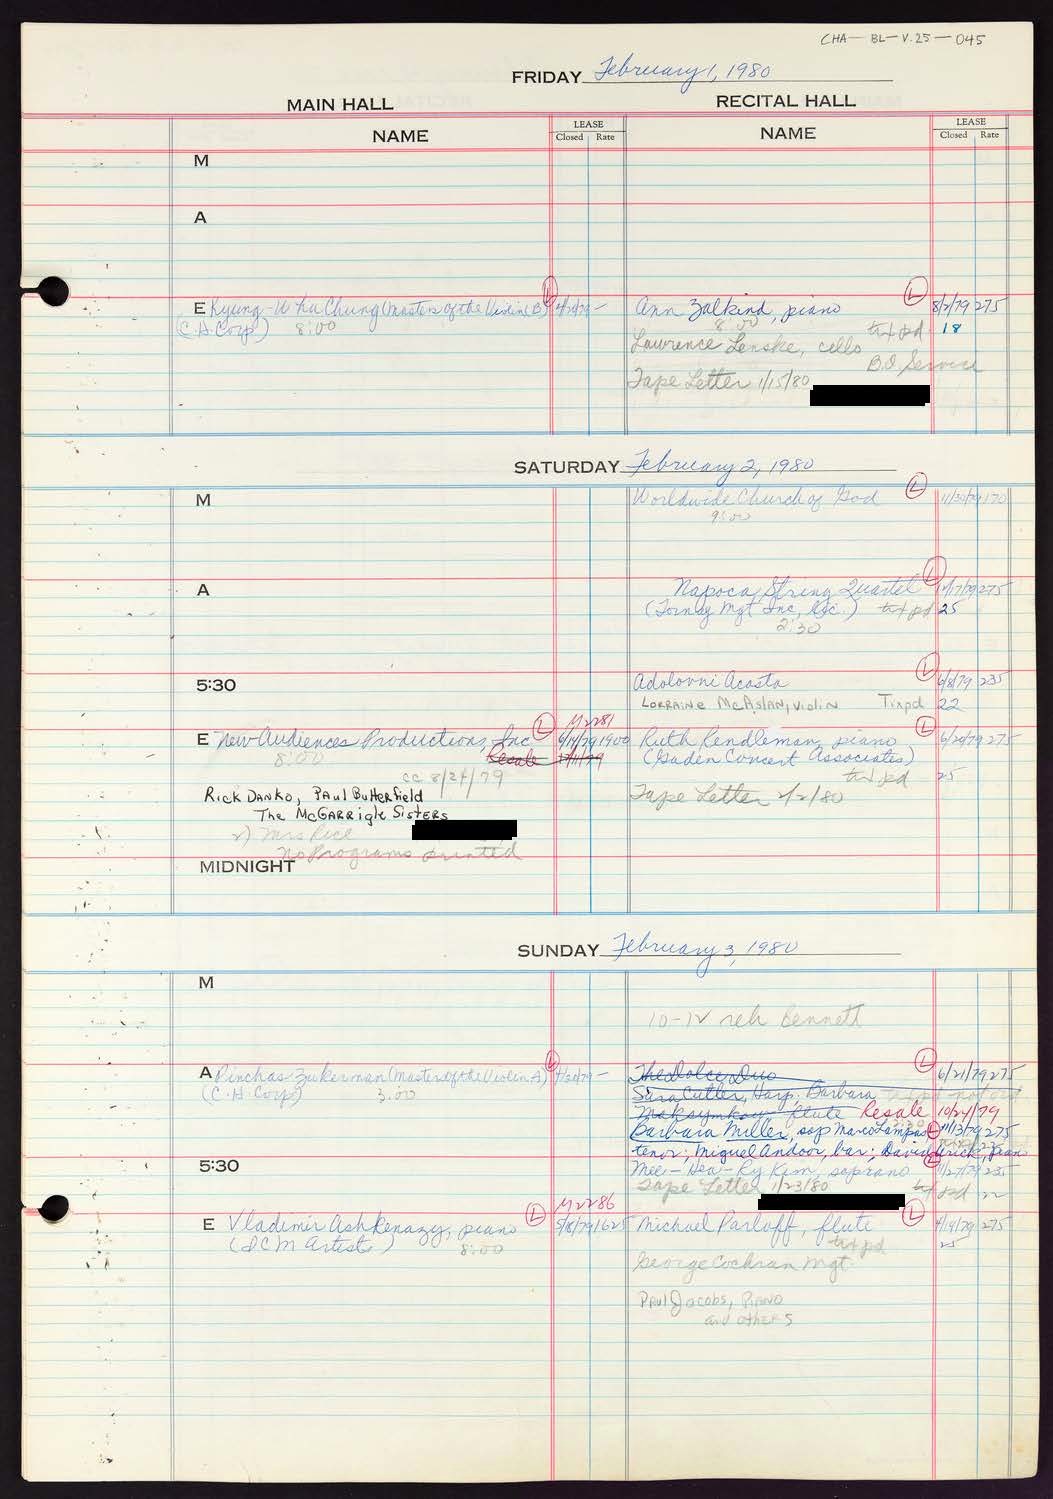 CHA-BL-V.25-045
FRIDAY February 1, 1980
MAIN HALL
RECITAL HALL
NAME
LEASE
Closed Rate
NAME
LEASE
Closed Rate
M
A
E Kyung-Wha Chung (Masters of the Violin B) L 4/20/79 -
(C.H. Corp) 8:00
Ann Zalkind, piano L 8/2/79 275
8:00 tix pd 18
Lawrence Lenske, cello
B.O. Service
Tape Letter 1/15/80
SATURDAY February 2, 1980
M
Worldwide Church of God L 11/30/79 170
9:00
A
Napoca String Quartet L 275
(Tornay Mgt Inc, ) tix pd 25
2:30
5:30
Adolovni Acosta L 6/8/79 235
Lorraine McAslan, violin Tix pd 22
M2281
E New Audiences Productions, Inc L 6/14/79 1900
8:00 Resale 7/11/79
cc 8/24/79
Rick Danko, Paul Butterfield
The McGarrigle Sisters
2) Mrs Rice
No Programs printed
Ruth Rendleman, piano L 6/20/79 275
(Gaden Concert Associates)
tix pd 25
Tape Letter 2/2/80
MIDNIGHT
SUNDAY February 3, 1980
M
10-12 reh Bennett
A Pinchas Zukerman (Masters of the Violin A) L 4/20/79 -
(C.H. Corp) 3:00
The Dolce Duo L 6/21/79 275
Sara Cutler, Harp, Barbara
Maksymkow flute Resale 10/24/79
Barbara Miller, sop Marco L 11/13/79 275
tenor; Miguel Andoor, bar; David
5:30
Mee-Hea-Ry Kim, soprano L 11/27/79 235
Tape Letter 1/23/80 tix pd 22
M2286
E Vladimir Ashkenazy, piano L 5/8/79 1625
(ICM Artists) 8:00
Michael Parloff, flute L 275
tix pd 25
George Cochran Mgt.
Paul Jacobs, Piano
and others